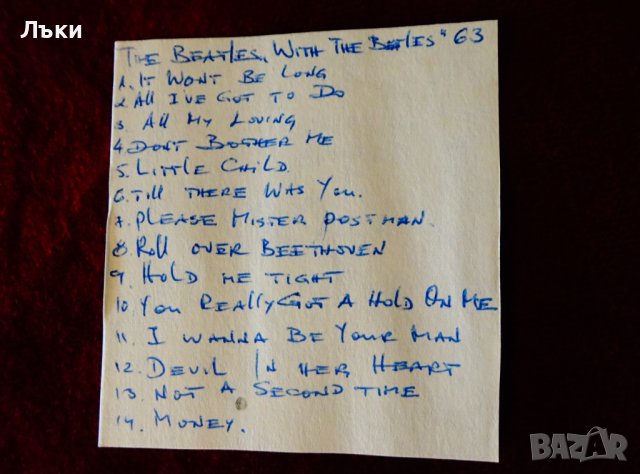 Лъки
THE BEATLES, WITH THE BETLES" 63
1. IT WONT BE LONG
2 All I'VE GOT TO DO
3 All MY LOVING
4 DONT BOTHER ME
5. LITTLE CHILD
6. Till THERE WAS YOU.
7. PLEASE MISTER POSTMAN.
8. Roll OVER BEETHOVEN
9. HOLD ME TIGHT
10. YOU REALLY GOT A HOLD ON ME
11. I WANNA BE YOUR MAN
12. DEVIL IN HER HEART
13. NOT A SECOND TIME
14. MONEY.
BAZAR